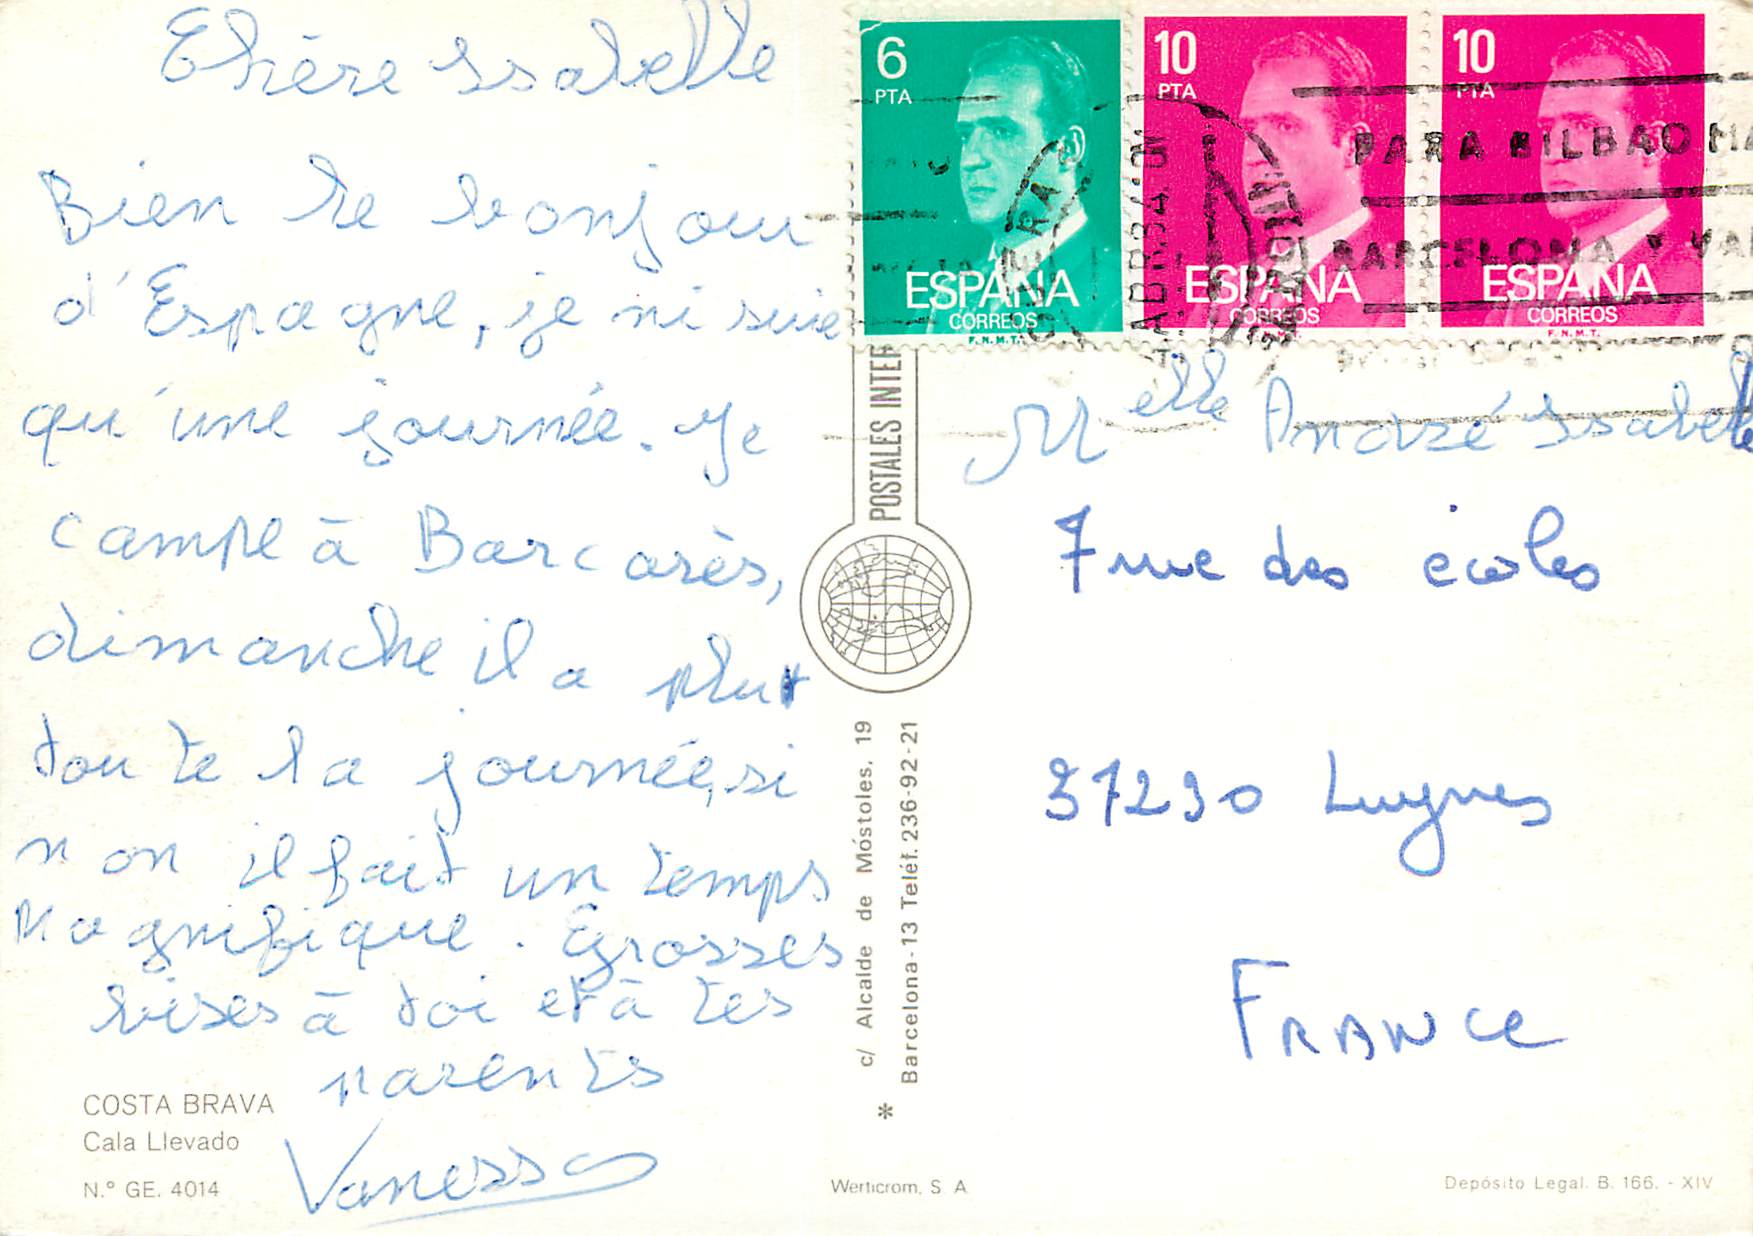 Chère Issabelle
Bien le bonjour
d'Espagne, je ni suie
qu'une journée. Je
campe à Barcarès,
dimanche il a plut
toute la journée, si
non il fait un temps
Magnifique. Grosses
bises à toi et à tes
parents
Vanessa
COSTA BRAVA
Cala Llevado
N.º GE. 4014
6
PTA
ESPAÑA
CORREOS
F.N.M.T.
10
PTA
ESPAÑA
CORREOS
F.N.M.T.
10
PTA
ESPAÑA
CORREOS
F.N.M.T.
PARA BILBAO MA
BARCELONA Y VA
POSTALES INTER
c/ Alcalde de Móstoles, 19
Barcelona-13 Teléf. 236-92-21
*
Melle André Issabelle
7 rue des écoles
37230 Luynes
FRANCE
Werticrom, S. A.
Depósito Legal. B. 166. - XIV